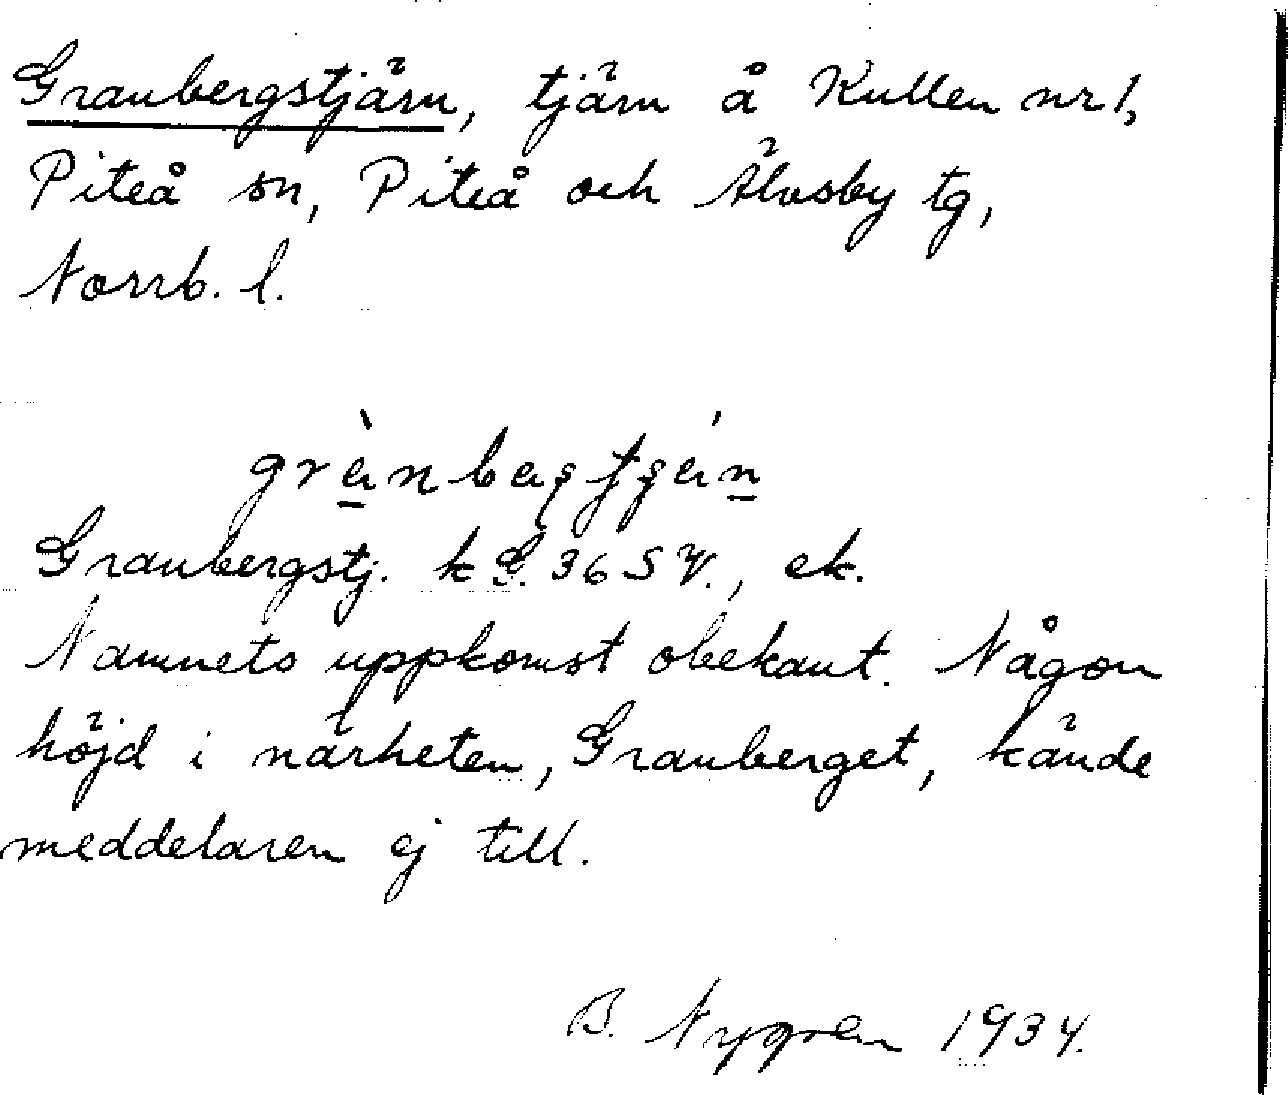 Granbergstjärn, tjärn å Kullen nr 1,
Piteå sn, Piteå och Älvsby tg,
Norrb. l.
Granbergstj. k G. 36 SV., ek.
Namnets uppkomst obekant. Någon
höjd i närheten, Granberget, kände
meddelaren ej till.
B. Nygren 1934.